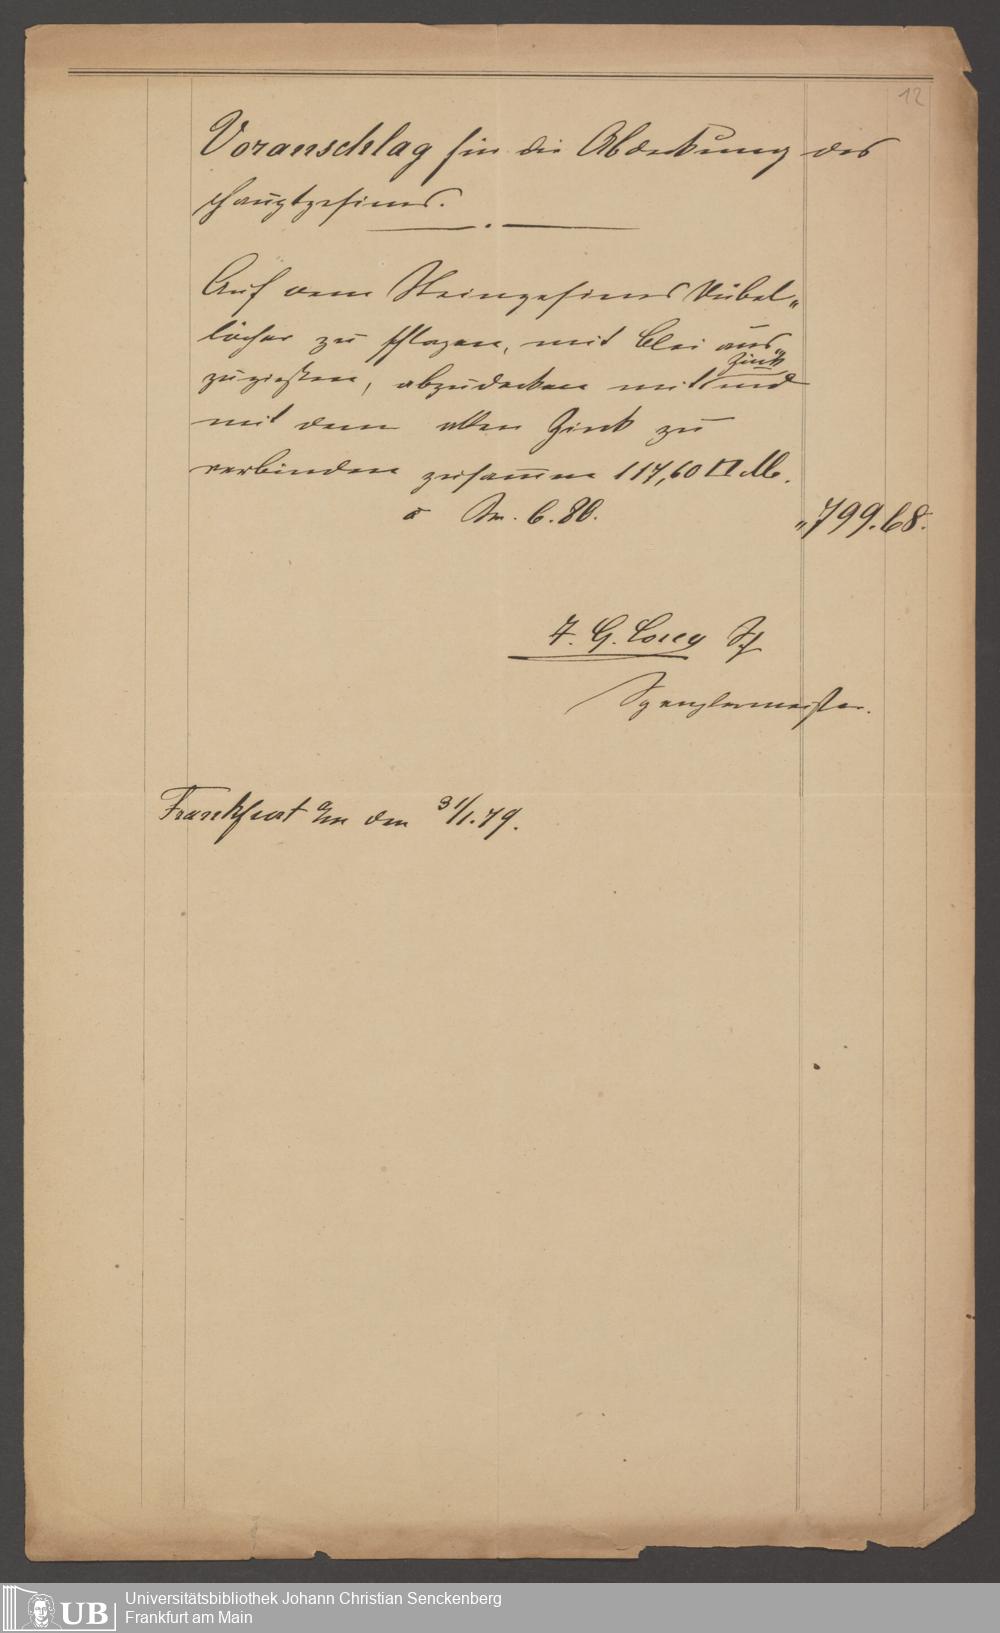 12
Voranschlag für die Abdeckung des
Hauptgesimses.
Auf dem Steingesimes Dübel„
löcher zu schlagen, mit Blei aus„
zugießen, abzudecken mit Zink und
mit dem alten Zink zu
verbinden zusammen 117,60 □ M.
à M. 6.80.
„799.68.
F. G. Corey
Spenglermeister.
Frankfurt a/m den 31/1.79.
UB
Universitätsbibliothek Johann Christian Senckenberg
Frankfurt am Main